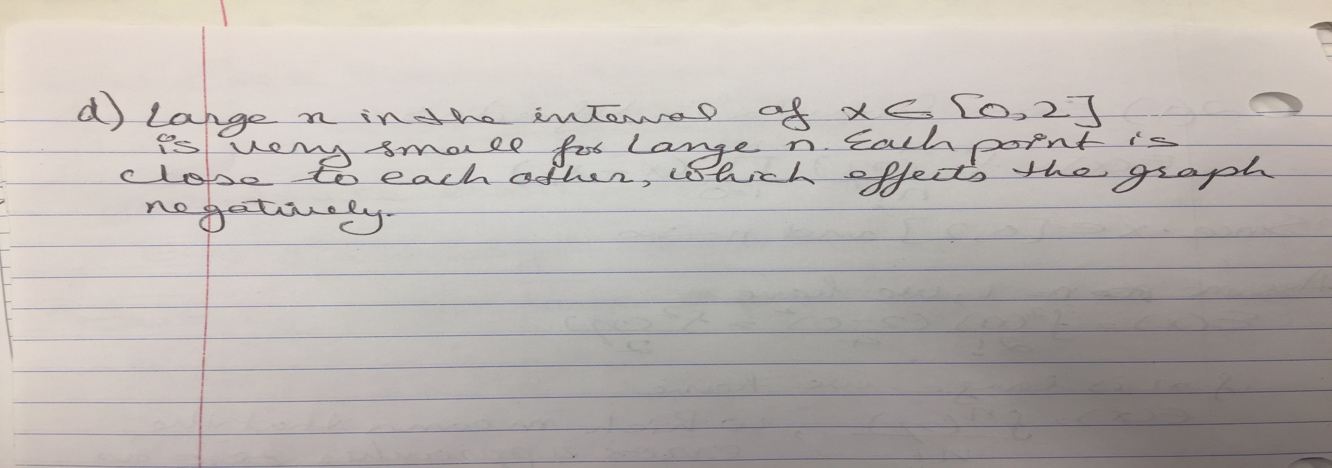 d) Large n in the interval of x ∈ [0,2]
is very small for large n. Each point is
close to each other, which effects the graph
negatively.